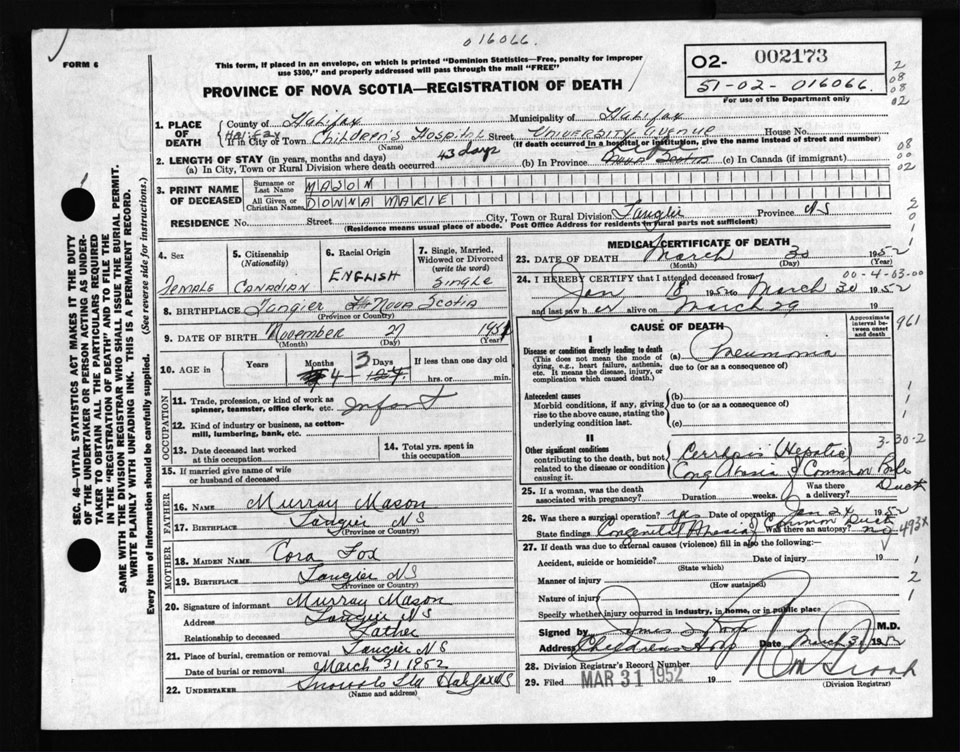 016066.
FORM 6
This form, if placed in an envelope, on which is printed "Dominion Statistics—Free, penalty for improper
use $300," and properly addressed will pass through the mail "FREE"
PROVINCE OF NOVA SCOTIA—REGISTRATION OF DEATH
O2- 002173
51-02-016066.
For use of the Department only
2
08
08
02
1. PLACE OF DEATH
County of Halifax Municipality of Halifax
Halifax
If in City or Town Children's Hospital Street University Avenue House No.
(Name) (If death occurred in a hospital or institution, give the name instead of street and number)
2. LENGTH OF STAY (in years, months and days)
(a) In City, Town or Rural Division where death occurred 43 days (b) In Province Life Nova Scotia (c) In Canada (if immigrant)
08
00
02
3. PRINT NAME OF DECEASED
Surname or Last Name MASON
All Given or Christian Names DONNA MARIE
RESIDENCE No. Street City, Town or Rural Division Tangier Province NS
(Residence means usual place of abode. Post Office Address for residents in rural parts not sufficient)
4. Sex
Female
5. Citizenship
(Nationality)
Canadian
6. Racial Origin
English
7. Single, Married,
Widowed or Divorced
(write the word)
Single
8. BIRTHPLACE Tangier Nova Scotia
(Province or Country)
9. DATE OF BIRTH November 27 1951
(Month) (Day) (Year)
10. AGE in
Years
Months
4
Days
3
If less than one day old
hrs. or min.
OCCUPATION
11. Trade, profession, or kind of work as
spinner, teamster, office clerk, etc. Infant
12. Kind of industry or business, as cotton-
mill, lumbering, bank, etc.
13. Date deceased last worked
at this occupation
14. Total yrs. spent in
this occupation
15. If married give name of wife
or husband of deceased
FATHER
16. NAME Murray Mason
17. BIRTHPLACE Tangier NS
(Province or Country)
MOTHER
18. MAIDEN NAME Cora Fox
19. BIRTHPLACE Tangier NS
(Province or Country)
20. Signature of informant Murray Mason
Address Tangier NS
Relationship to deceased Father
21. Place of burial, cremation or removal Tangier NS
Date of burial or removal March 31 1952
22. UNDERTAKER Snows Ltd Halifax NS
(Name and address)
MEDICAL CERTIFICATE OF DEATH
23. DATE OF DEATH March 30 1952
(Month) (Day) (Year)
00-4-03-00
24. I HEREBY CERTIFY that I attended deceased from
Jan 18 1952 to March 30 1952
and last saw her alive on March 29 19
CAUSE OF DEATH
Approximate
interval between
onset
and death
961
I
Disease or condition directly leading to death
(This does not mean the mode of
dying, e.g., heart failure, asthenia,
etc. It means the disease, injury, or
complication which caused death.)
(a) Pneumonia
due to (or as a consequence of)
Antecedent causes
Morbid conditions, if any, giving
rise to the above cause, stating the
underlying condition last.
(b)
due to (or as a consequence of)
(c)
II
Other significant conditions
contributing to the death, but not
related to the disease or condition
causing it.
Hepatic
Cong Atresia of Common Bile
Duct
3-30-2
25. If a woman, was the death
associated with pregnancy? Duration weeks. Was there
a delivery?
26. Was there a surgical operation? yes Date of operation Jan 24 1952
State findings Congenital Atresia of Common Duct Was there an autopsy? no
493x
27. If death was due to external causes (violence) fill in also the following:—
Accident, suicide or homicide? Date of injury 19
(State which)
Manner of injury
(How sustained)
Nature of injury
Specify whether injury occurred in industry, in home, or in public place
Signed by M.D.
Address Childrens Hosp Date March 30 1952
28. Division Registrar's Record Number
29. Filed MAR 31 1952 19
(Division Registrar)
SEC. 46—VITAL STATISTICS ACT MAKES IT THE DUTY
OF THE UNDERTAKER OR PERSON ACTING AS UNDER-
TAKER TO OBTAIN ALL THE PARTICULARS REQUIRED
IN THE "REGISTRATION OF DEATH" AND TO FILE THE
SAME WITH THE DIVISION REGISTRAR WHO SHALL ISSUE THE BURIAL PERMIT.
WRITE PLAINLY WITH UNFADING INK. THIS IS A PERMANENT RECORD.
Every item of information should be carefully supplied. (See reverse side for instructions.)